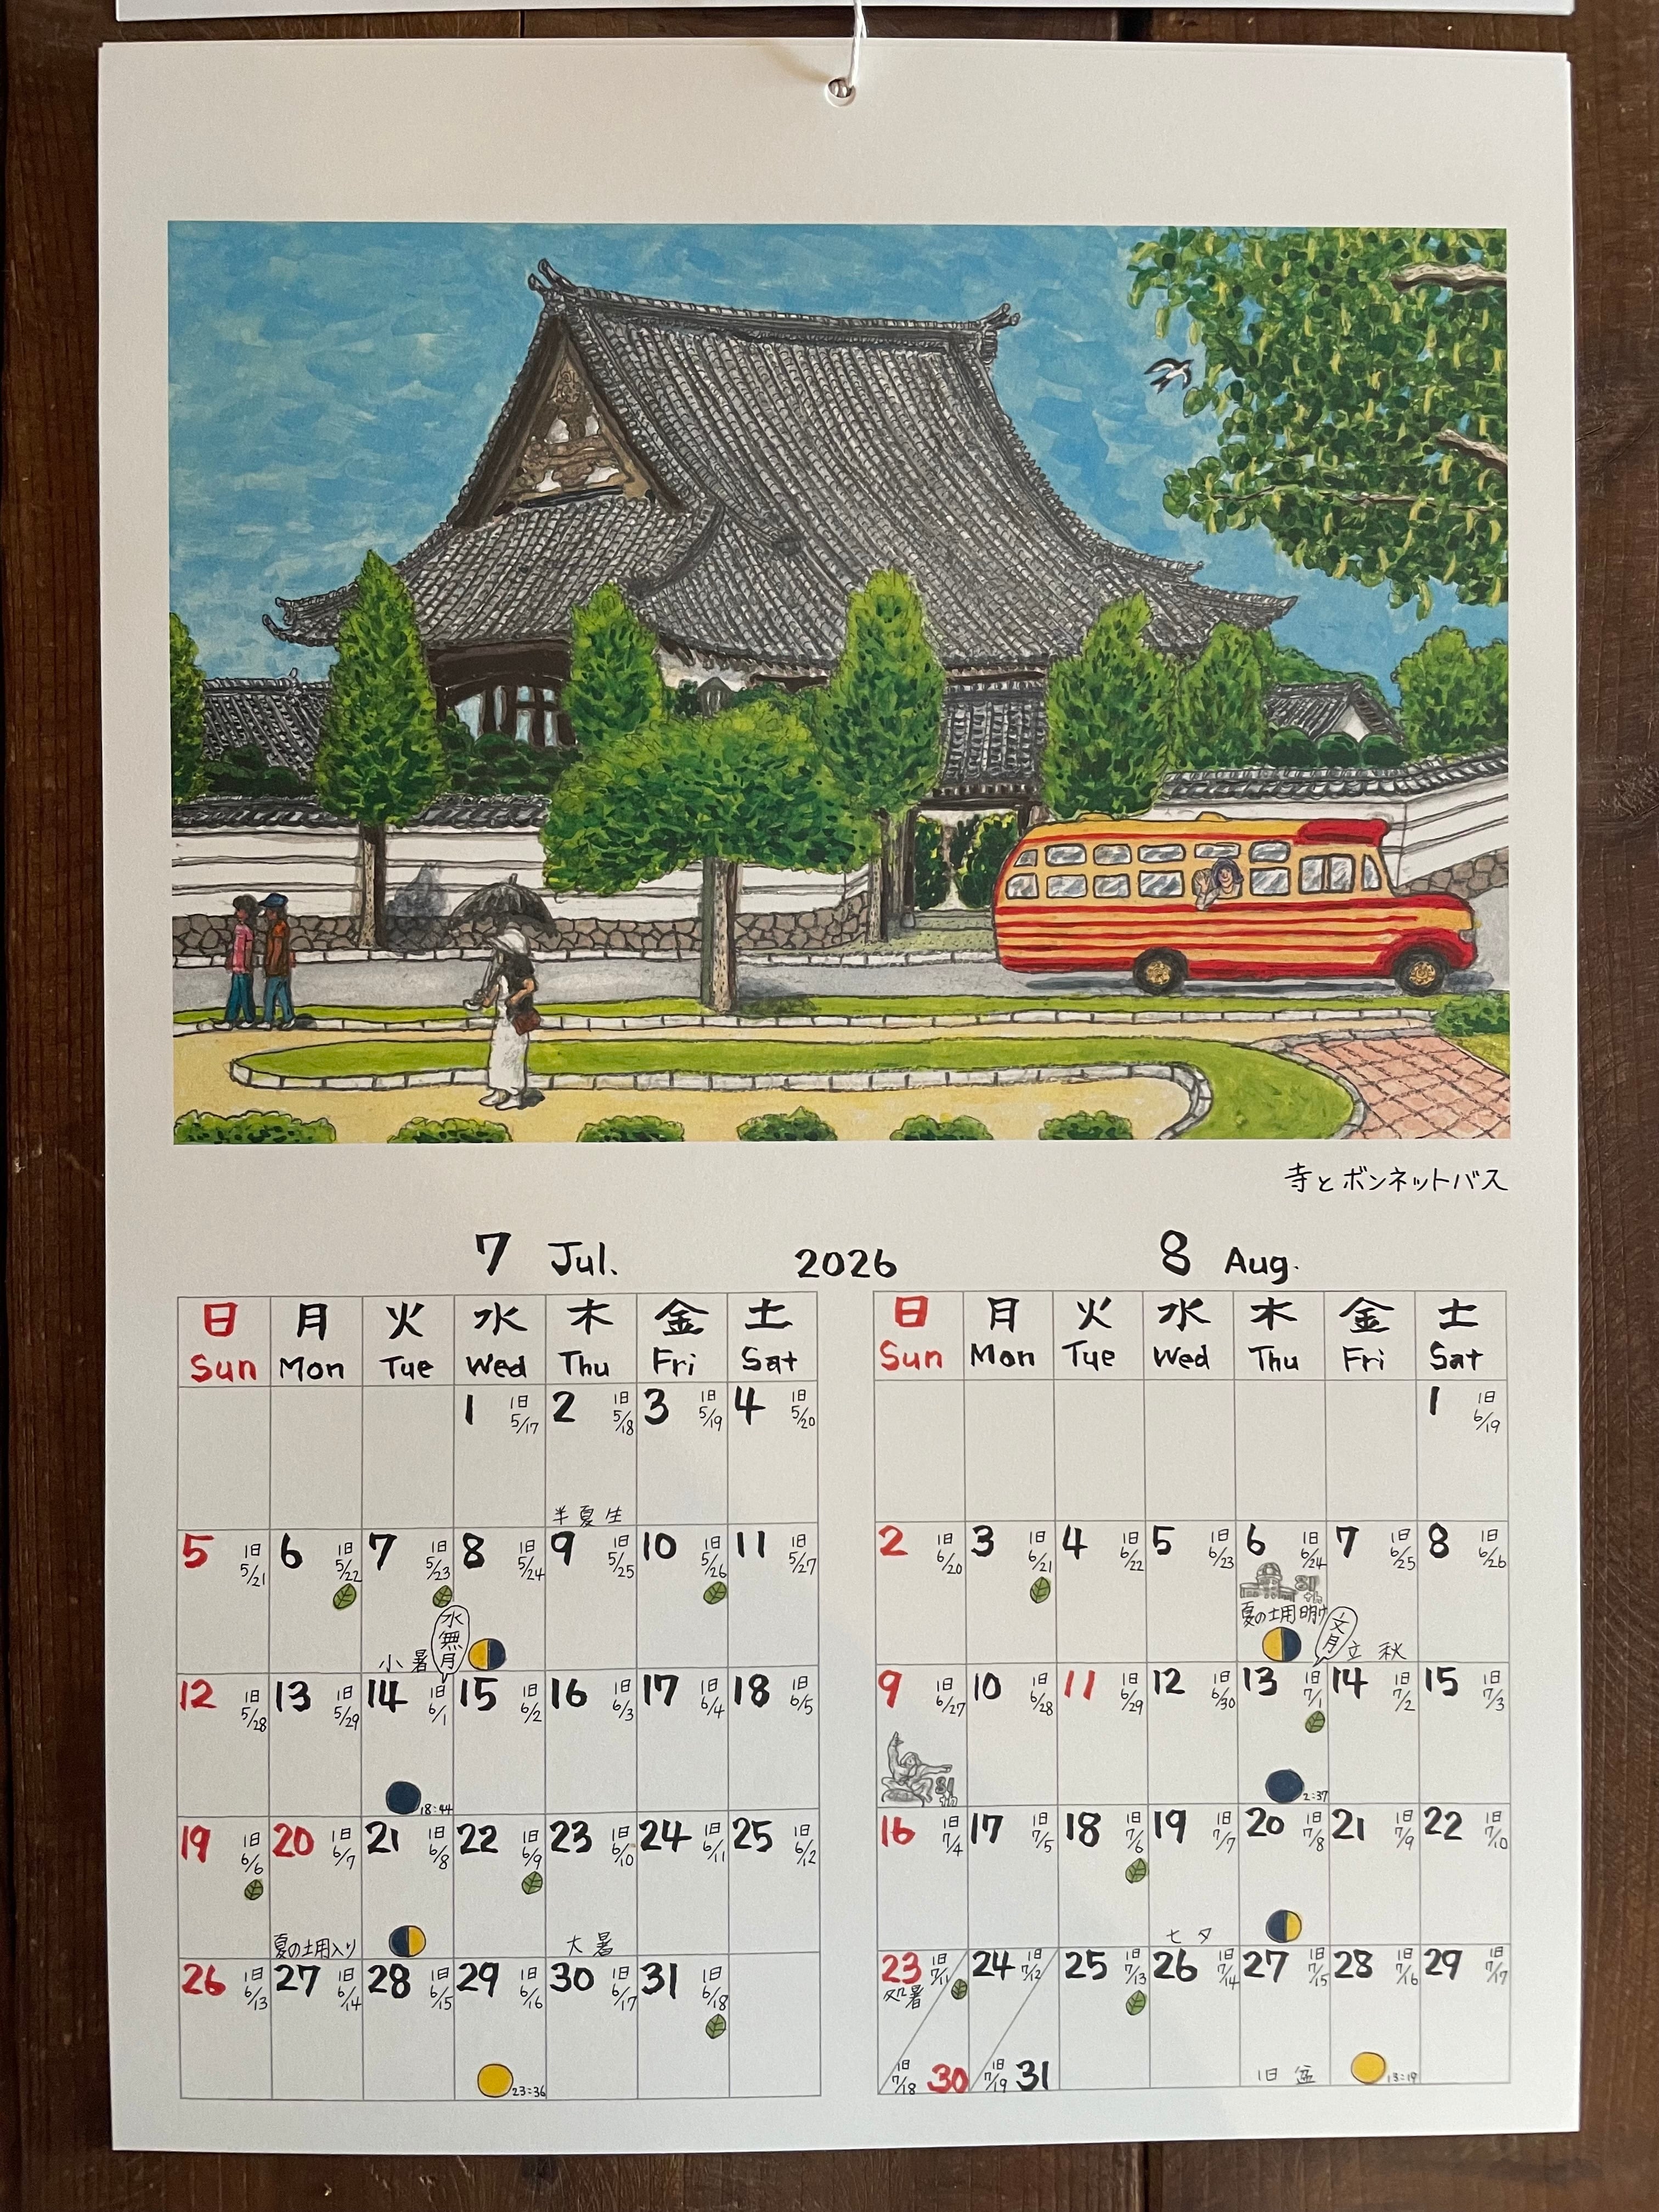 寺とボンネットバス
7 Jul. 2026 8 Aug.
日 月 火 水 木 金 土
Sun Mon Tue Wed Thu Fri Sat
1 旧5/17 2 旧5/18 3 旧5/19 4 旧5/20
半夏生
5 旧5/21 6 旧5/22 7 旧5/23 8 旧5/24 9 旧5/25 10 旧5/26 11 旧5/27
小暑 水無月
12 旧5/28 13 旧5/29 14 旧6/1 15 旧6/2 16 旧6/3 17 旧6/4 18 旧6/5
18:44
19 旧6/6 20 旧6/7 21 旧6/8 22 旧6/9 23 旧6/10 24 旧6/11 25 旧6/12
夏の土用入り 大暑
26 旧6/13 27 旧6/14 28 旧6/15 29 旧6/16 30 旧6/17 31 旧6/18
23:36
日 月 火 水 木 金 土
Sun Mon Tue Wed Thu Fri Sat
1 旧6/19
2 旧6/20 3 旧6/21 4 旧6/22 5 旧6/23 6 旧6/24 7 旧6/25 8 旧6/26
夏の土用明け 文月 立秋
9 旧6/27 10 旧6/28 11 旧6/29 12 旧6/30 13 旧7/1 14 旧7/2 15 旧7/3
2:37
16 旧7/4 17 旧7/5 18 旧7/6 19 旧7/7 20 旧7/8 21 旧7/9 22 旧7/10
七夕
23 旧7/11 24 旧7/12 25 旧7/13 26 旧7/14 27 旧7/15 28 旧7/16 29 旧7/17
処暑
旧7/18 30 旧7/19 31 旧盆 13:19